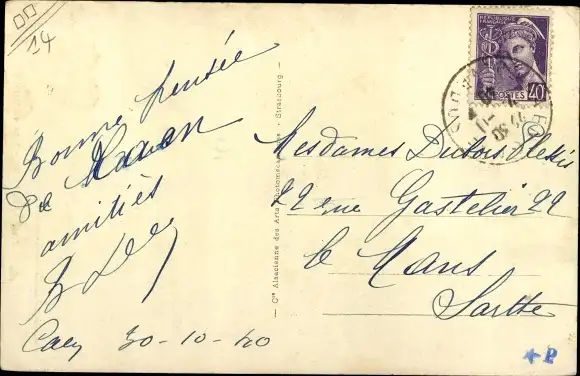 14
Bonne pensée
de
amitiés
Caen 30-10-40
REPUBLIQUE FRANÇAISE
POSTES 40
Mesdames Dubois
22 rue Gastelier 22
le Mans
Sarthe
— Cie Alsacienne des Arts Photomécaniques - Strasbourg —